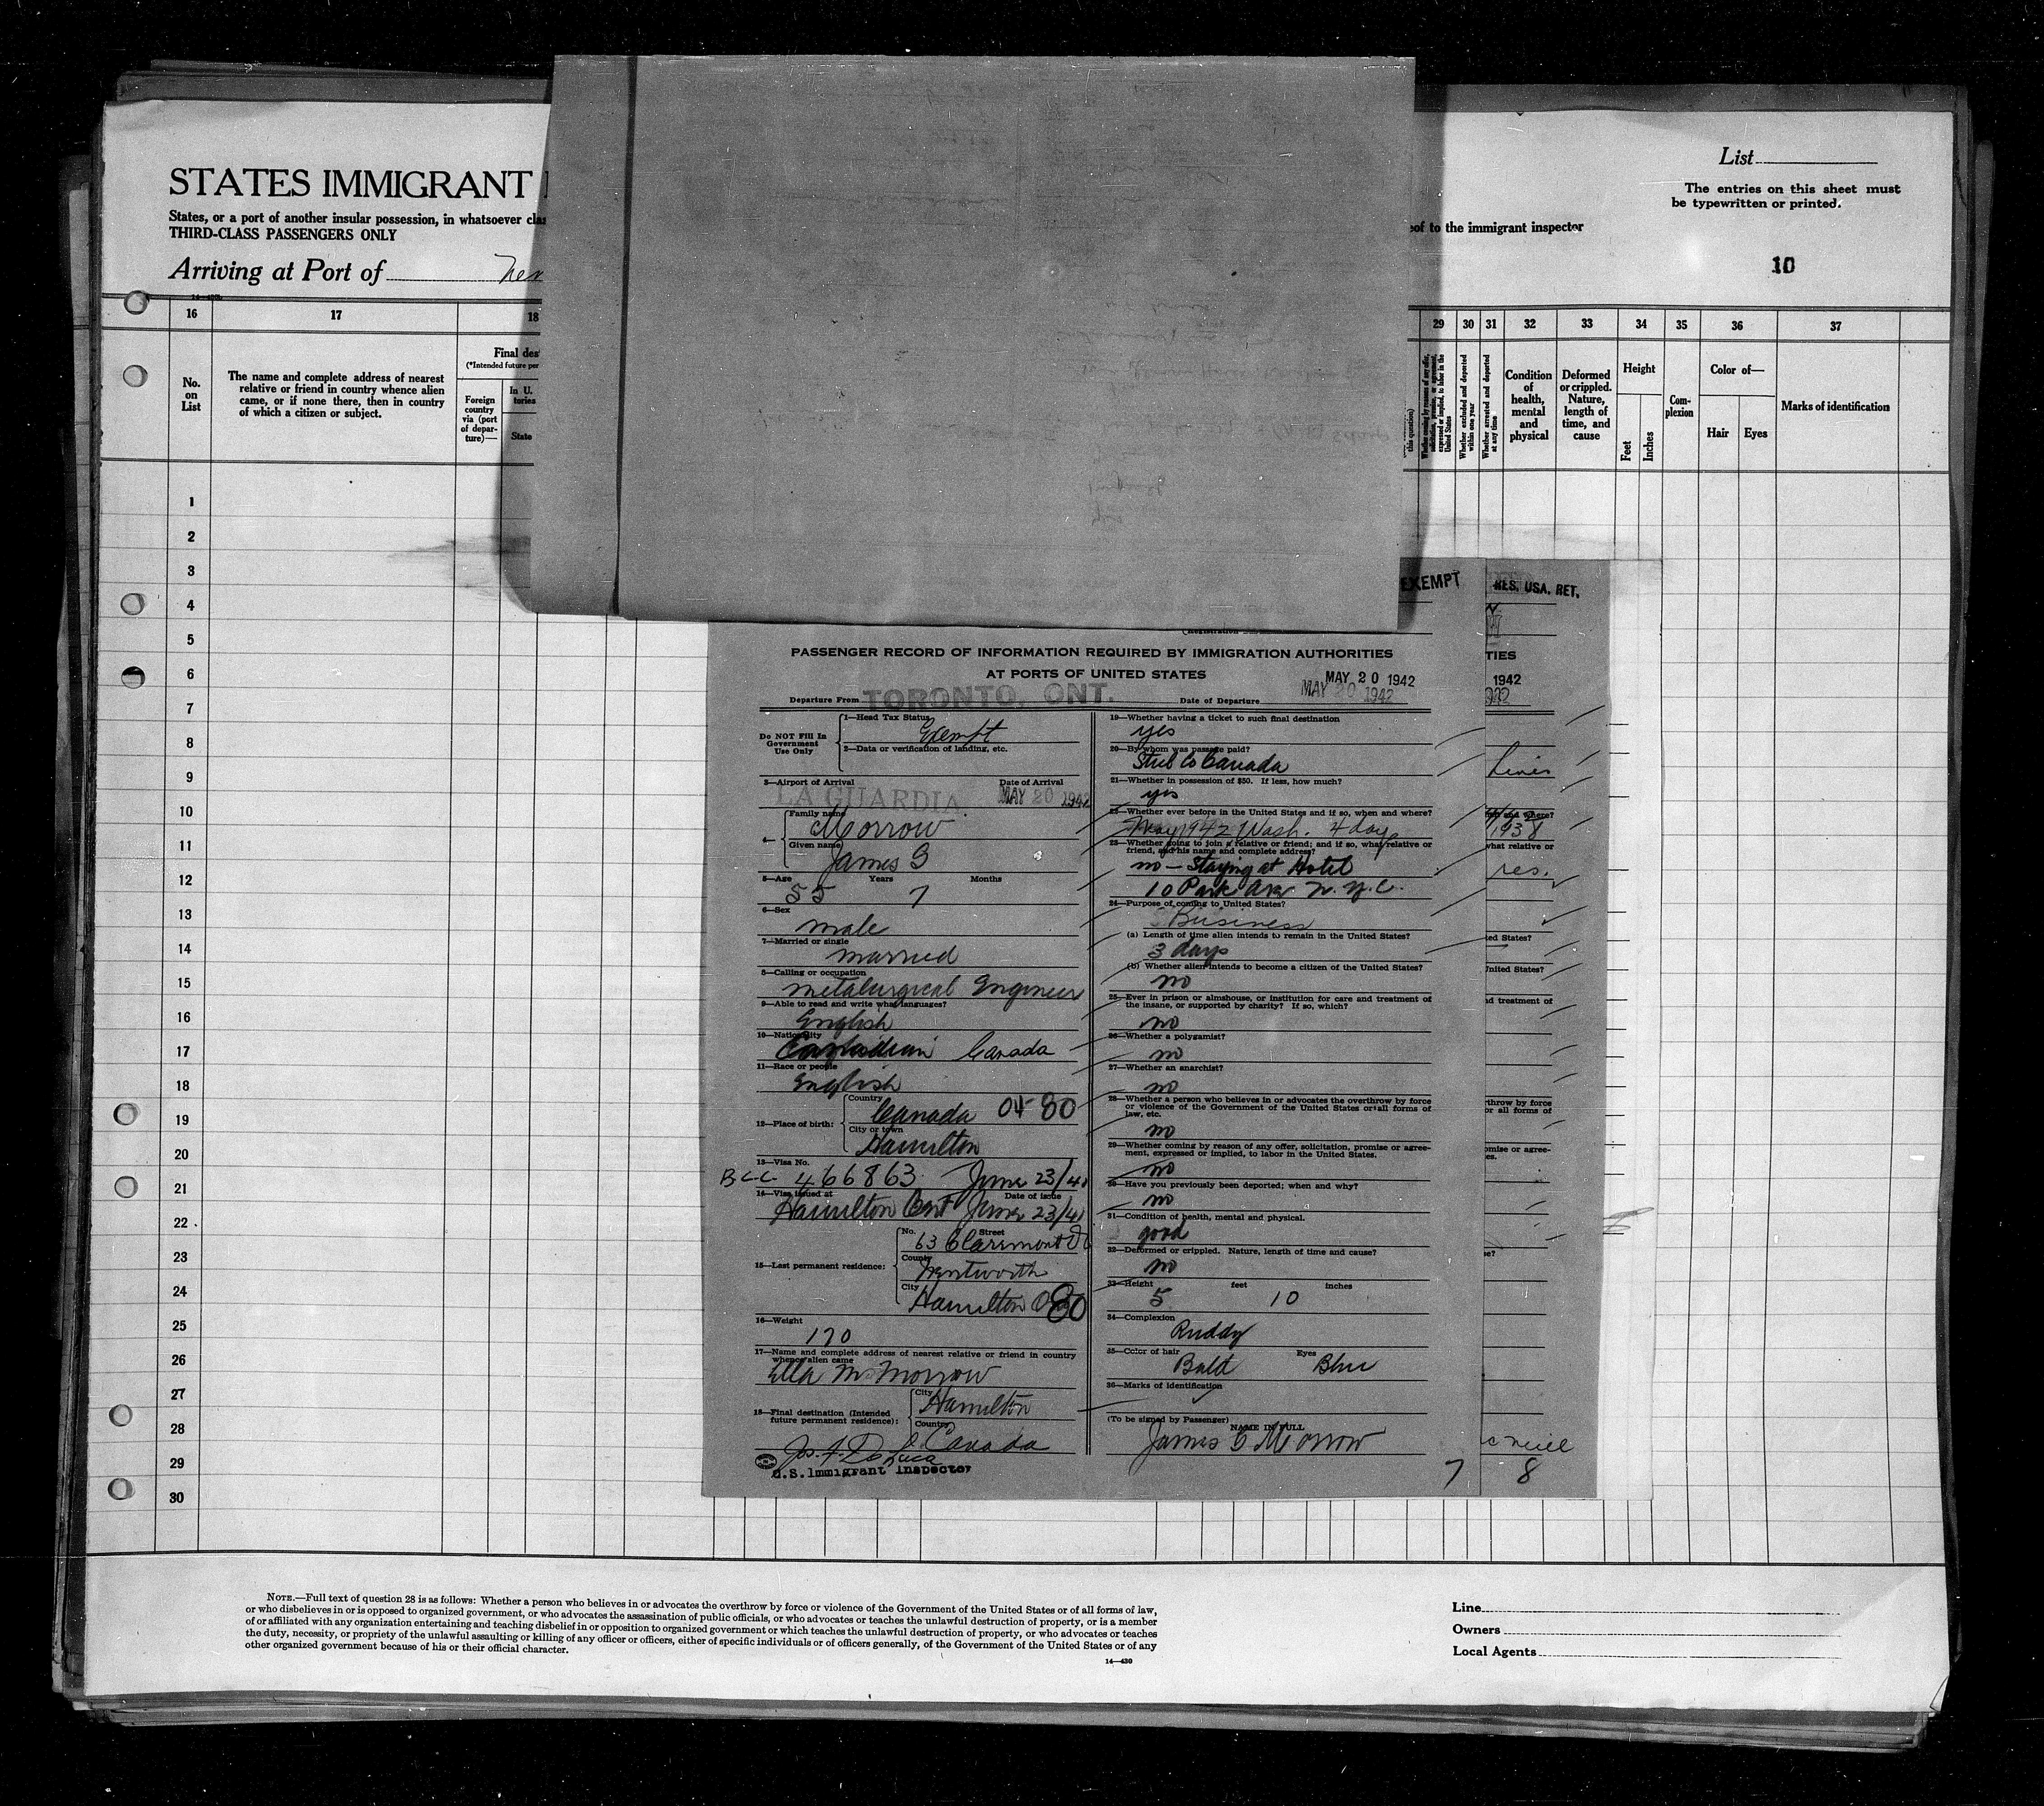 STATES IMMIGRANT
States, or a port of another insular possession, in whatsoever
THIRD-CLASS PASSENGERS ONLY
Arriving at Port of
List
The entries on this sheet must
be typewritten or printed.
to the immigrant inspector
10
16 17 18 29 30 31 32 33 34 35 36 37
No.
on
List
The name and complete address of nearest
relative or friend in country whence alien
came, or if none there, then in country
of which a citizen or subject.
Final
(*Intended future
Foreign
country
via (port
of depar-
ture)—
In U.
State
this question)
Whether coming by reasons of any offer,
solicitation, promise, or agreement,
expressed or implied, to labor in the
United States
Whether excluded and deported
within one year
Whether arrested and deported
at any time
Condition
of
health,
mental
and
physical
Deformed
or crippled.
Nature,
length of
time, and
cause
Height
Feet
Inches
Com-
plexion
Color of—
Hair Eyes
Marks of identification
1
2
3
4
5
6
7
8
9
10
11
12
13
14
15
16
17
18
19
20
21
22
23
24
25
26
27
28
29
30
EXEMPT
RES. USA. RET.
PASSENGER RECORD OF INFORMATION REQUIRED BY IMMIGRATION AUTHORITIES
AT PORTS OF UNITED STATES
MAY 20 1942
Departure From TORONTO, ONT. Date of Departure MAY 20 1942
Do NOT Fill In
Government
Use Only
1—Head Tax Status
Exempt
2—Data or verification of landing, etc.
3—Airport of Arrival Date of Arrival
LA GUARDIA MAY 20 1942
4— Family name
Morrow
Given name
James G
5—Age Years Months
55 7
6—Sex
male
7—Married or single
married
8—Calling or occupation
metalurgical Engineer
9—Able to read and write what languages?
English
10—Nationality
Canadian Canada
11—Race or people
English
12—Place of birth:
Country
Canada 04-80
City or town
Hamilton
13—Visa No.
BCC 466863 June 23/41
14—Visa issued at Date of issue
Hamilton Ont June 23/41
15—Last permanent residence:
No. Street
63 Claremont Dr
County
Wentworth
City
Hamilton 80
16—Weight
170
17—Name and complete address of nearest relative or friend in country
whence alien came
Ella M Morrow
18—Final destination (Intended
future permanent residence):
City
Hamilton
Country
Canada
U.S. Immigrant Inspector
19—Whether having a ticket to such final destination
yes
20—By whom was passage paid?
Steel Co Canada
21—Whether in possession of $50. If less, how much?
yes
22—Whether ever before in the United States and if so, when and where?
May 1942 Wash. 4 days
23—Whether going to join a relative or friend; and if so, what relative or
friend, and his name and complete address?
no - Staying at Hotel
10 Park Ave N.Y.C.
24—Purpose of coming to United States?
Business
(a) Length of time alien intends to remain in the United States?
3 days
(b) Whether alien intends to become a citizen of the United States?
no
25—Ever in prison or almshouse, or institution for care and treatment of
the insane, or supported by charity? If so, which?
no
26—Whether a polygamist?
no
27—Whether an anarchist?
no
28—Whether a person who believes in or advocates the overthrow by force
or violence of the Government of the United States or all forms of
law, etc.
no
29—Whether coming by reason of any offer, solicitation, promise or agree-
ment, expressed or implied, to labor in the United States.
no
30—Have you previously been deported; when and why?
no
31—Condition of health, mental and physical.
good
32—Deformed or crippled. Nature, length of time and cause?
no
33—Height feet inches
5 10
34—Complexion
Ruddy
35—Color of hair Eyes
Bald Blue
36—Marks of identification
(To be signed by Passenger)
NAME IN FULL
James G Morrow
7
TIES
1942
and where?
1938
what relative or
res.
United States?
treatment of
by force
or all forms of
or agree-
8
NOTE.—Full text of question 28 is as follows: Whether a person who believes in or advocates the overthrow by force or violence of the Government of the United States or of all forms of law,
or who disbelieves in or is opposed to organized government, or who advocates the assassination of public officials, or who advocates or teaches the unlawful destruction of property, or is a member
of or affiliated with any organization entertaining and teaching disbelief in or opposition to organized government or which teaches the unlawful destruction of property, or who advocates or teaches
the duty, necessity, or propriety of the unlawful assaulting or killing of any officer or officers, either of specific individuals or of officers generally, of the Government of the United States or of any
other organized government because of his or their official character.
14—430
Line
Owners
Local Agents